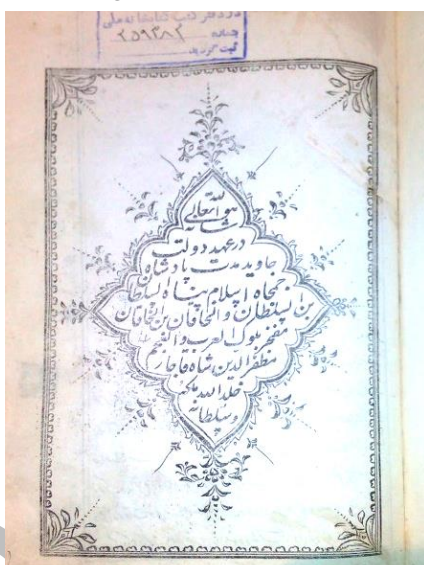 در دفتر ثبت کتابخانه ملی
شماره ۲۵۹۳۸۲
ثبت گردید
هو الله تعالی
شانه
در عهد دولت
جاوید مدت پادشاه
جمجاه اسلام پناه السلطان
بن السلطان والخاقان بن الخاقان
مفخر ملوک العرب والعجم
مظفر الدین شاه قاجار
خلد الله ملکه
و سلطانه